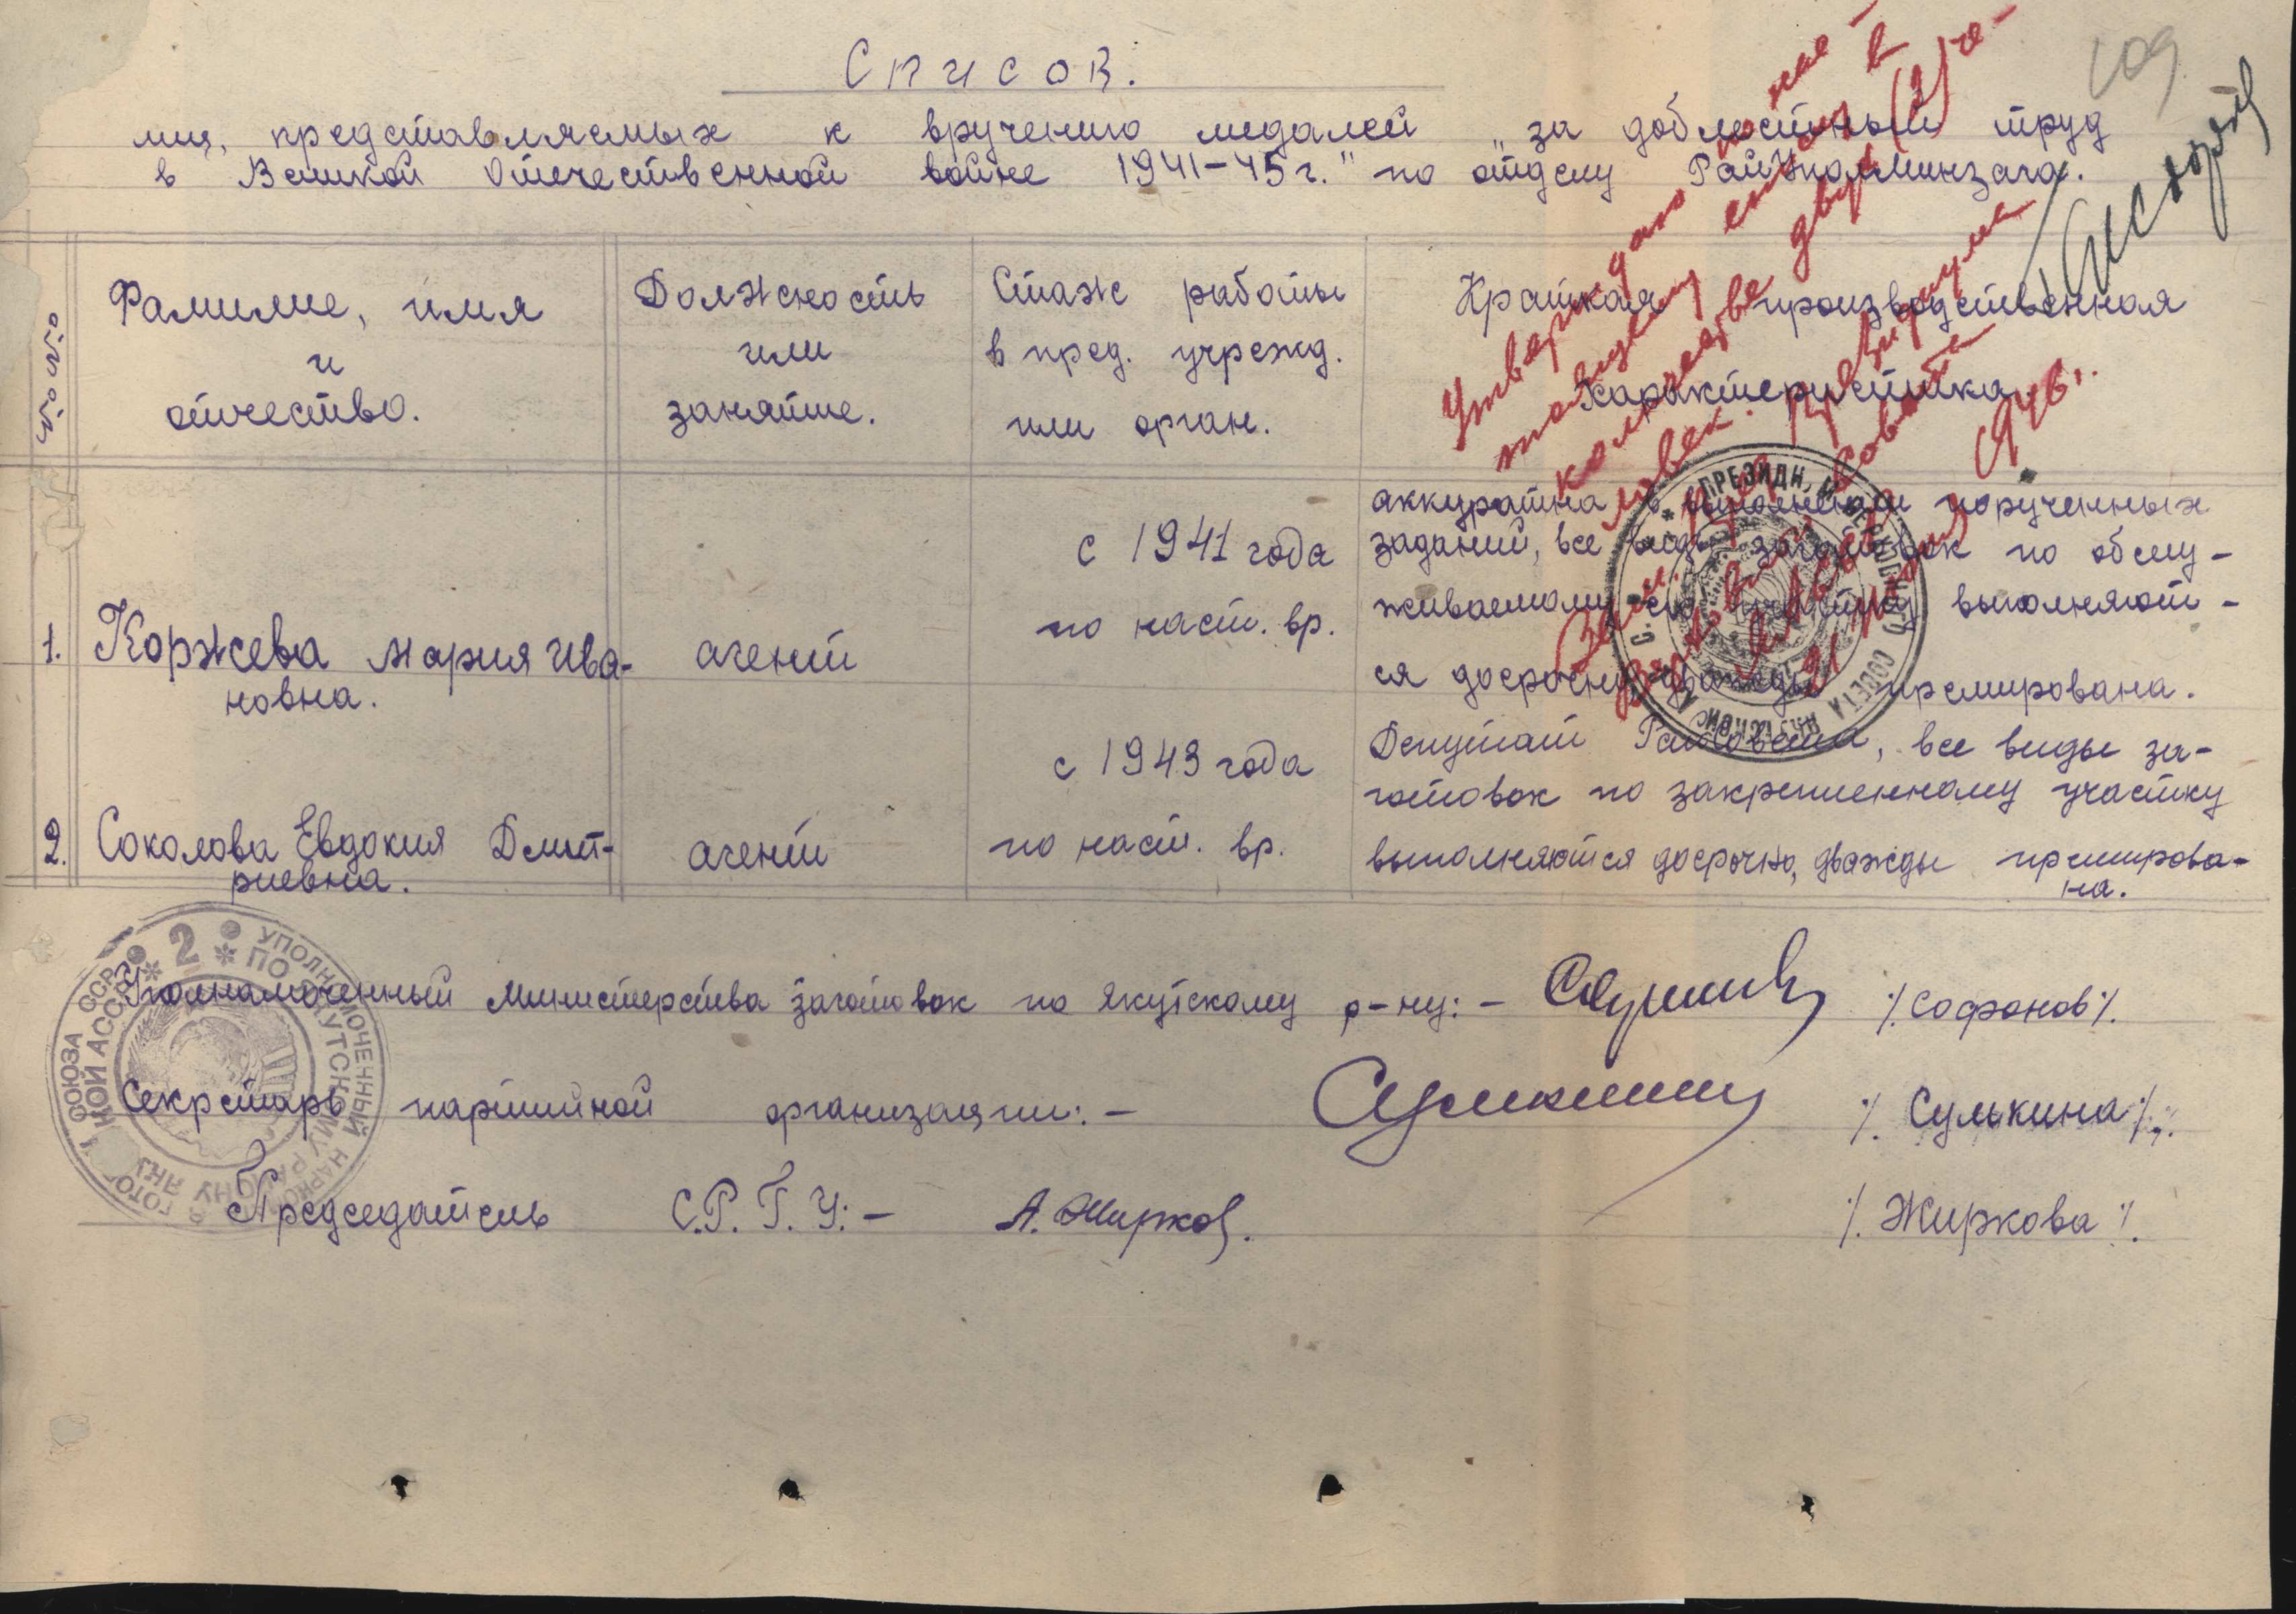 Список.
109
лиц, представляемых к вручению медалей „за доблестный труд
в Великой Отечественной войне 1941–45 г." по отделу РайУполМинзага.
№ №
Фамилие, имя
и
отчество.
Должность
или
занятие.
Стаж работы
в пред. учрежд.
или орган.
Краткая производственная
характеристика
1. Коржева Мария Ива-
новна.
агент
с 1941 года
по наст. вр.
аккуратна в выполнении порученных
заданий, все виды заготовок по обслу-
живаемому ею участку выполняют-
ся досрочно, дважды премирована.
2. Соколова Евдокия Дмит-
риевна.
агент
с 1943 года
по наст. вр.
Депутат Райсовета, все виды за-
готовок по закрепленному участку
выполняются досрочно, дважды премирова-
на.
Утверждаю
списку в
количестве двух (2) че-
ловек.
1946.
ПРЕЗИДИУМ ВЕРХОВНОГО СОВЕТА
Уполнамоченный Министерства заготовок по Якутскому р-ну: – /.Софронов/.
Секретарь партийной организации: – /.Сулькина/.
Председатель С.Р.Г.У: – А. Жирков. /.Жиркова/.
2
УПОЛНОМОЧЕННЫЙ НАРКОМ
СОЮЗА ССР
ПО ЯКУТСКОМУ РАЙОНУ